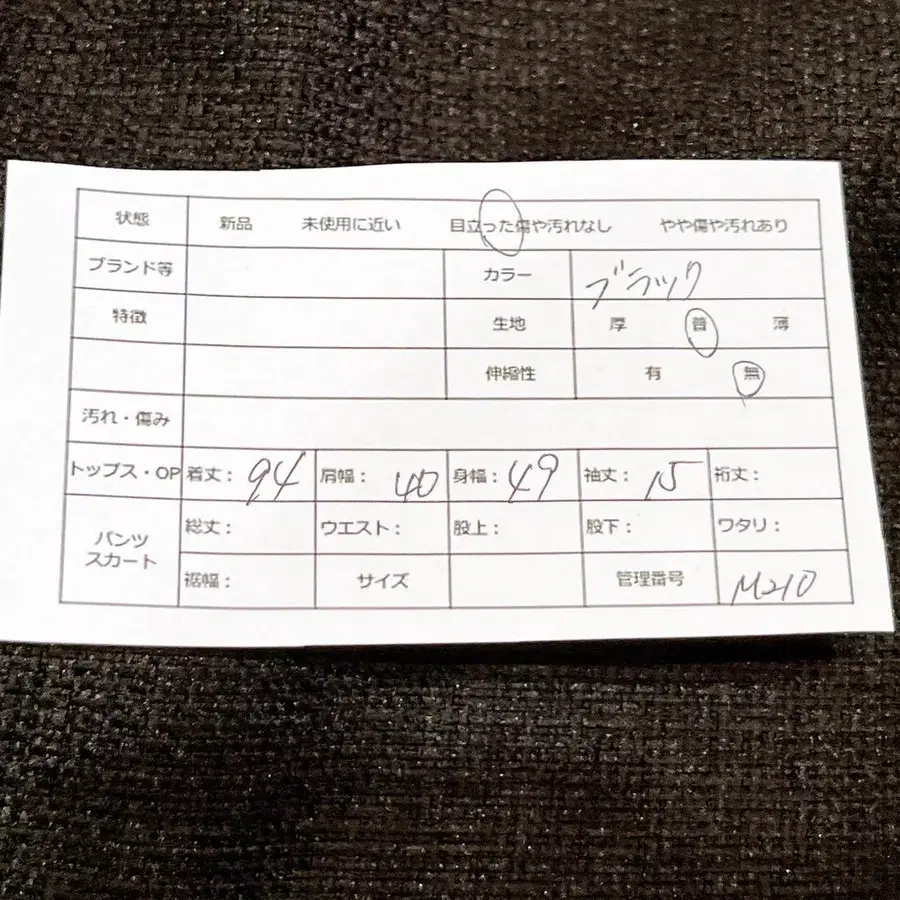 状態 新品 未使用に近い 目立った傷や汚れなし やや傷や汚れあり
ブランド等 カラー ブラック
特徴 生地 厚 普 薄
伸縮性 有 無
汚れ・傷み
トップス・OP 着丈： 94 肩幅： 40 身幅： 49 袖丈： 15 裄丈：
パンツ スカート 総丈： ウエスト： 股上： 股下： ワタリ：
裾幅： サイズ 管理番号 M210